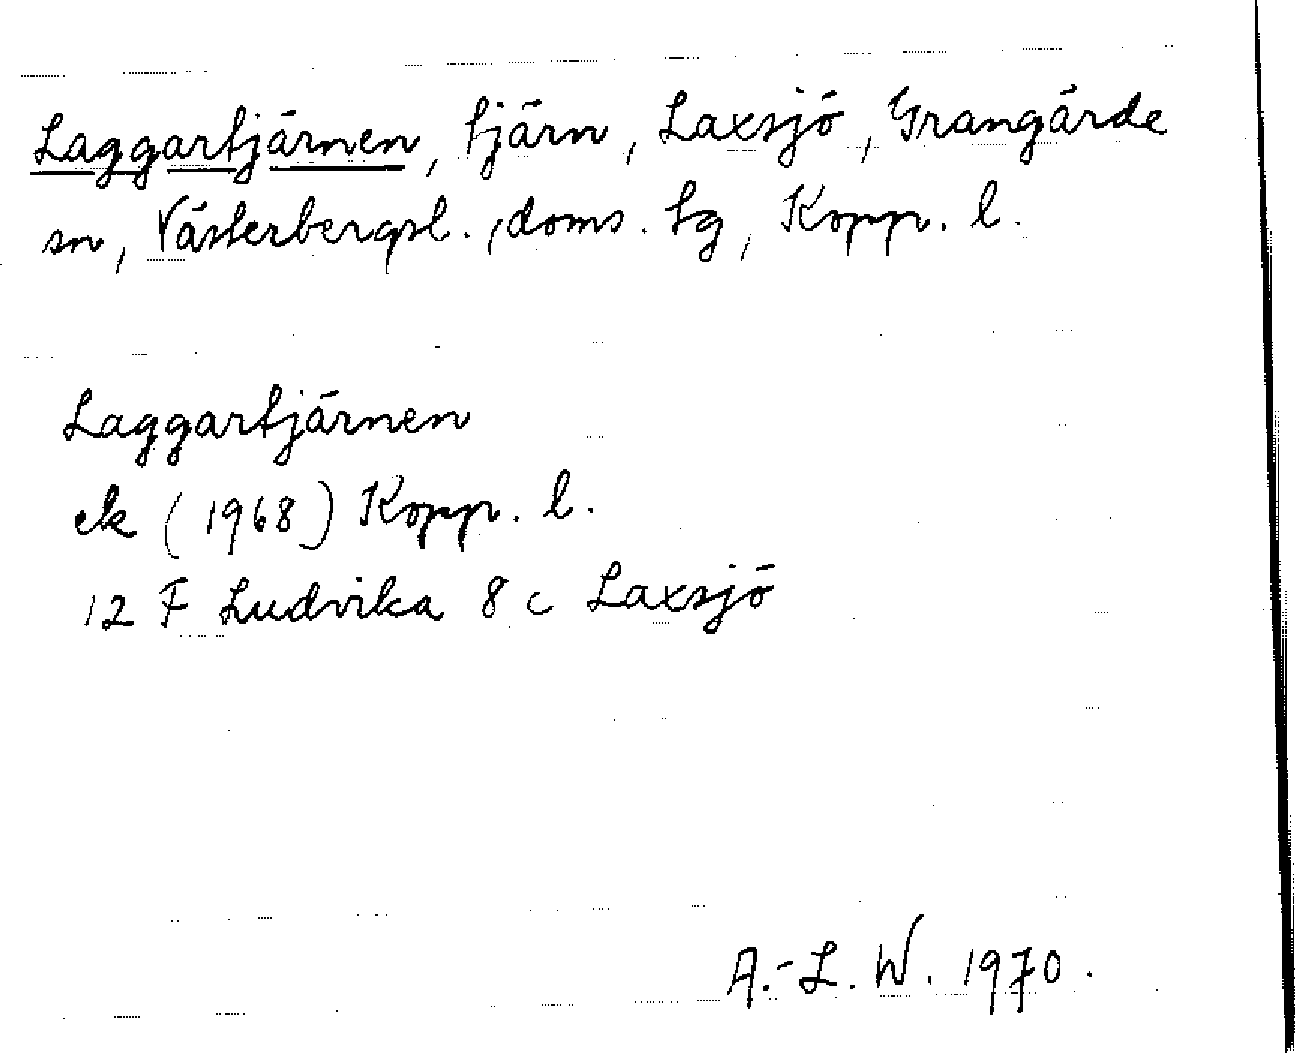 Laggartjärnen, tjärn, Laxsjö, Grangärde
sn, Västerbergsl., doms. tg, Kopp. l.
Laggartjärnen
ek (1968) Kopp. l.
12 F Ludvika 8 c Laxsjö
A.-L. W. 1970.